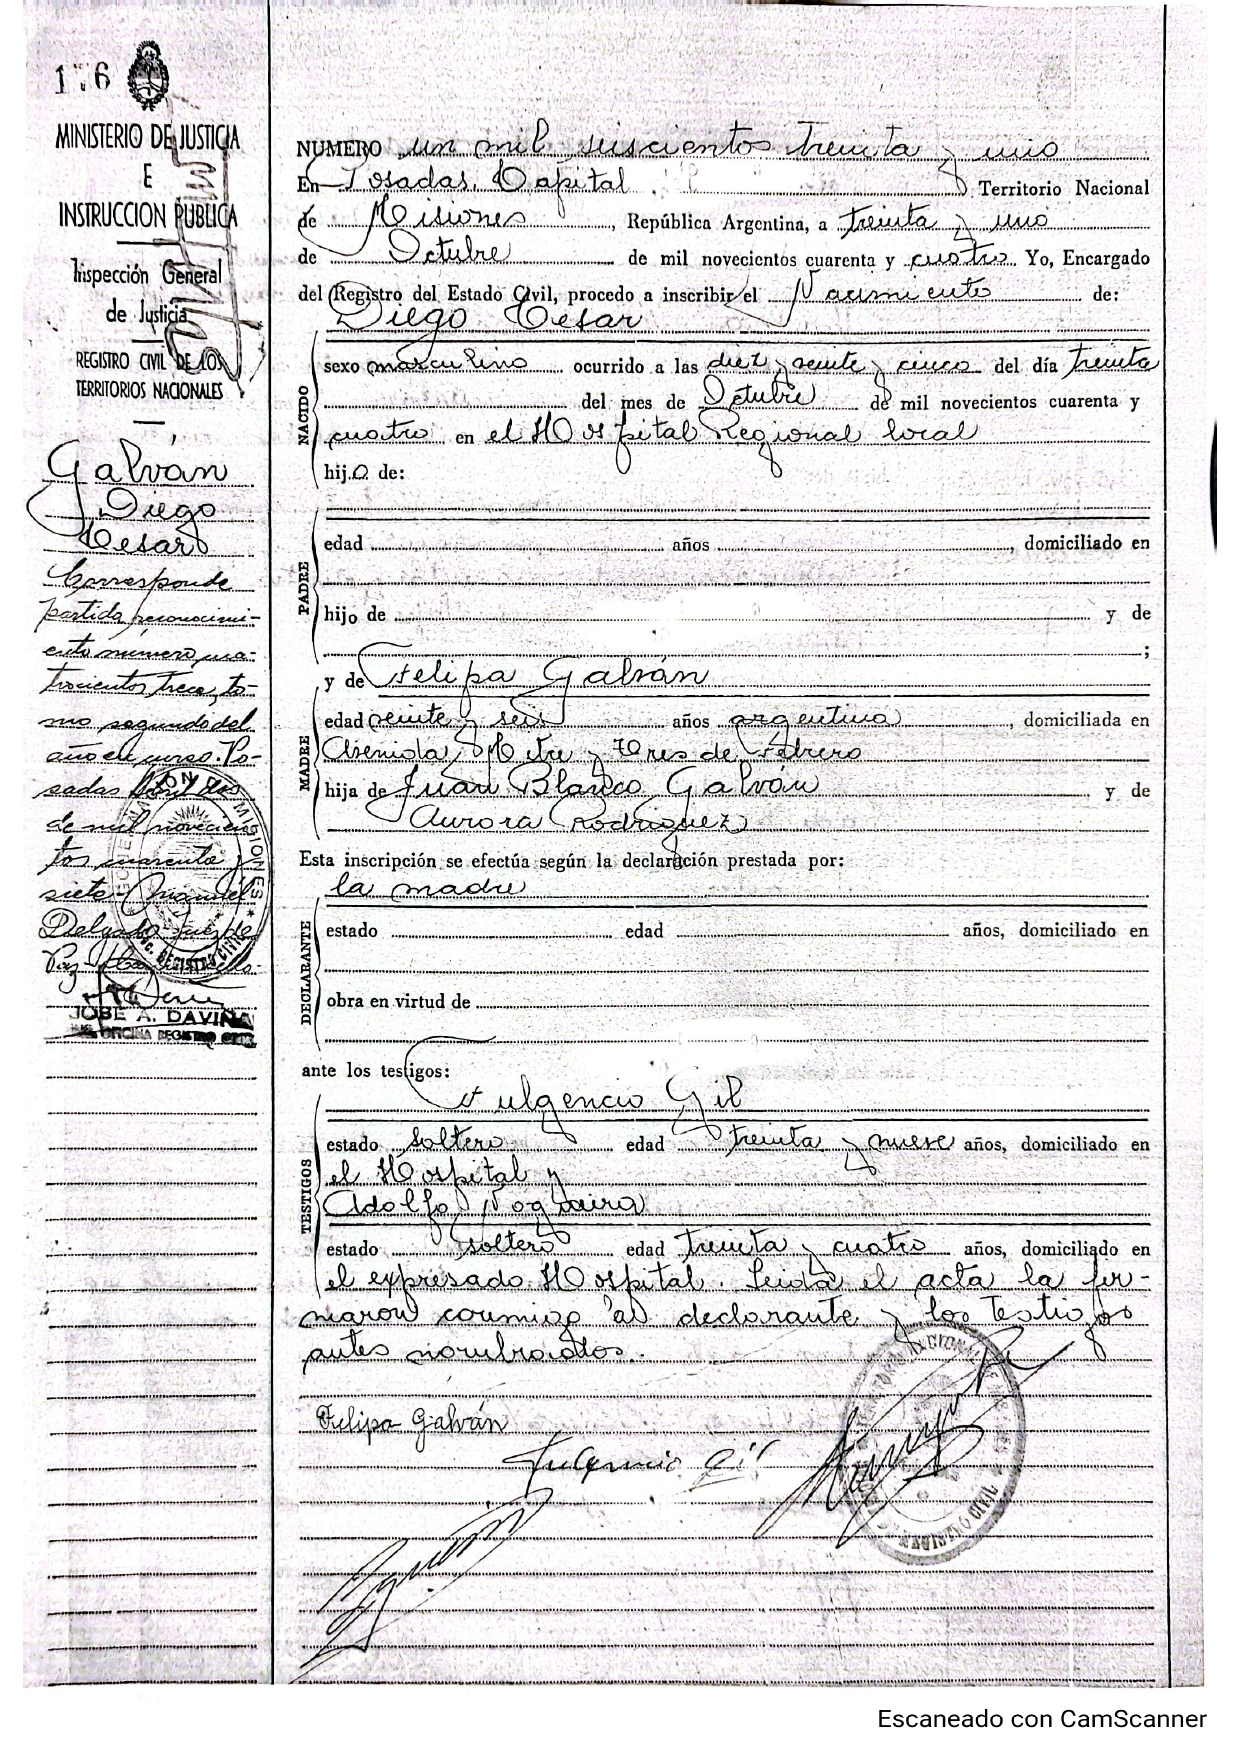 176
MINISTERIO DE JUSTICIA
E
INSTRUCCION PUBLICA
Inspección General
de Justicia
REGISTRO CIVIL DE LOS
TERRITORIOS NACIONALES
Galván
Diego
Cesar
Corresponde
partida reconocimi-
ento número cua-
trocientos trece, to-
mo segundo del
año en curso. Po-
sadas Abril dos
de mil novecien
tos cuarenta y
siete. Manuel
Delgado Juez de
Paz
JOSE A. DAVIÑA
OFICINA REGISTRO CIVIL
NUMERO un mil seiscientos treinta y uno
En Posadas, Capital Territorio Nacional
de Misiones, República Argentina, a treinta y uno
de Octubre de mil novecientos cuarenta y cuatro Yo, Encargado
del Registro del Estado Civil, procedo a inscribir el Nacimiento de:
Diego Cesar
NACIDO
sexo masculino ocurrido a las diez y veinte y cinco del día treinta
del mes de Octubre de mil novecientos cuarenta y
cuatro en el Hospital Regional local
hijo de:
PADRE
edad años, domiciliado en
hijo de y de
;
y de Felipa Galván
MADRE
edad veinte y seis años argentina, domiciliada en
Avenida Mitre y Tres de Febrero
hija de Juan Blanco Galván y de
Aurora Rodriguez
Esta inscripción se efectúa según la declaración prestada por:
la madre
DECLARANTE
estado edad años, domiciliado en
obra en virtud de
ante los testigos:
Fulgencio Gil
TESTIGOS
estado soltero edad treinta y nueve años, domiciliado en
el Hospital y
Adolfo Nogueira
estado soltero edad treinta y cuatro años, domiciliado en
el expresado Hospital. Leida el acta la fir-
maron conmigo la declarante y los testigos
antes nombrados.
Felipa Galván
Fulgencio Gil
REGISTRO CIVIL
Escaneado con CamScanner